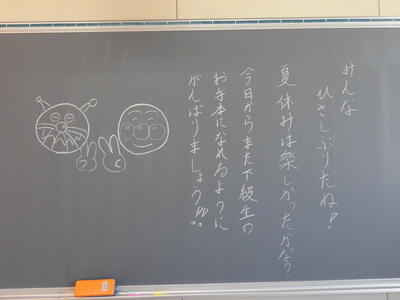 みんな
ひさしぶりだね!
夏休みは楽しかったかな?
今日からまた下級生の
お手本になれるように
がんばりましょう!!